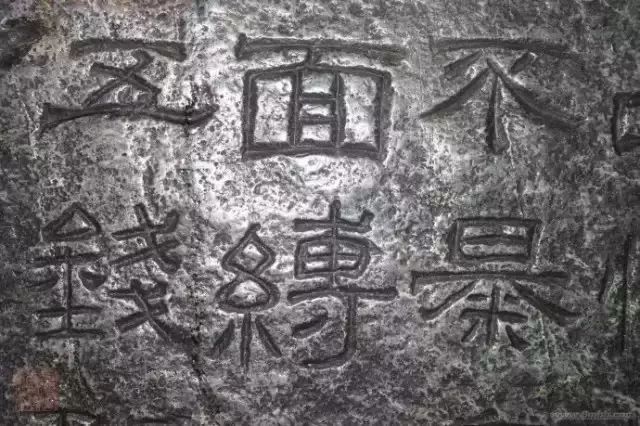 不暴
面縛
五錢